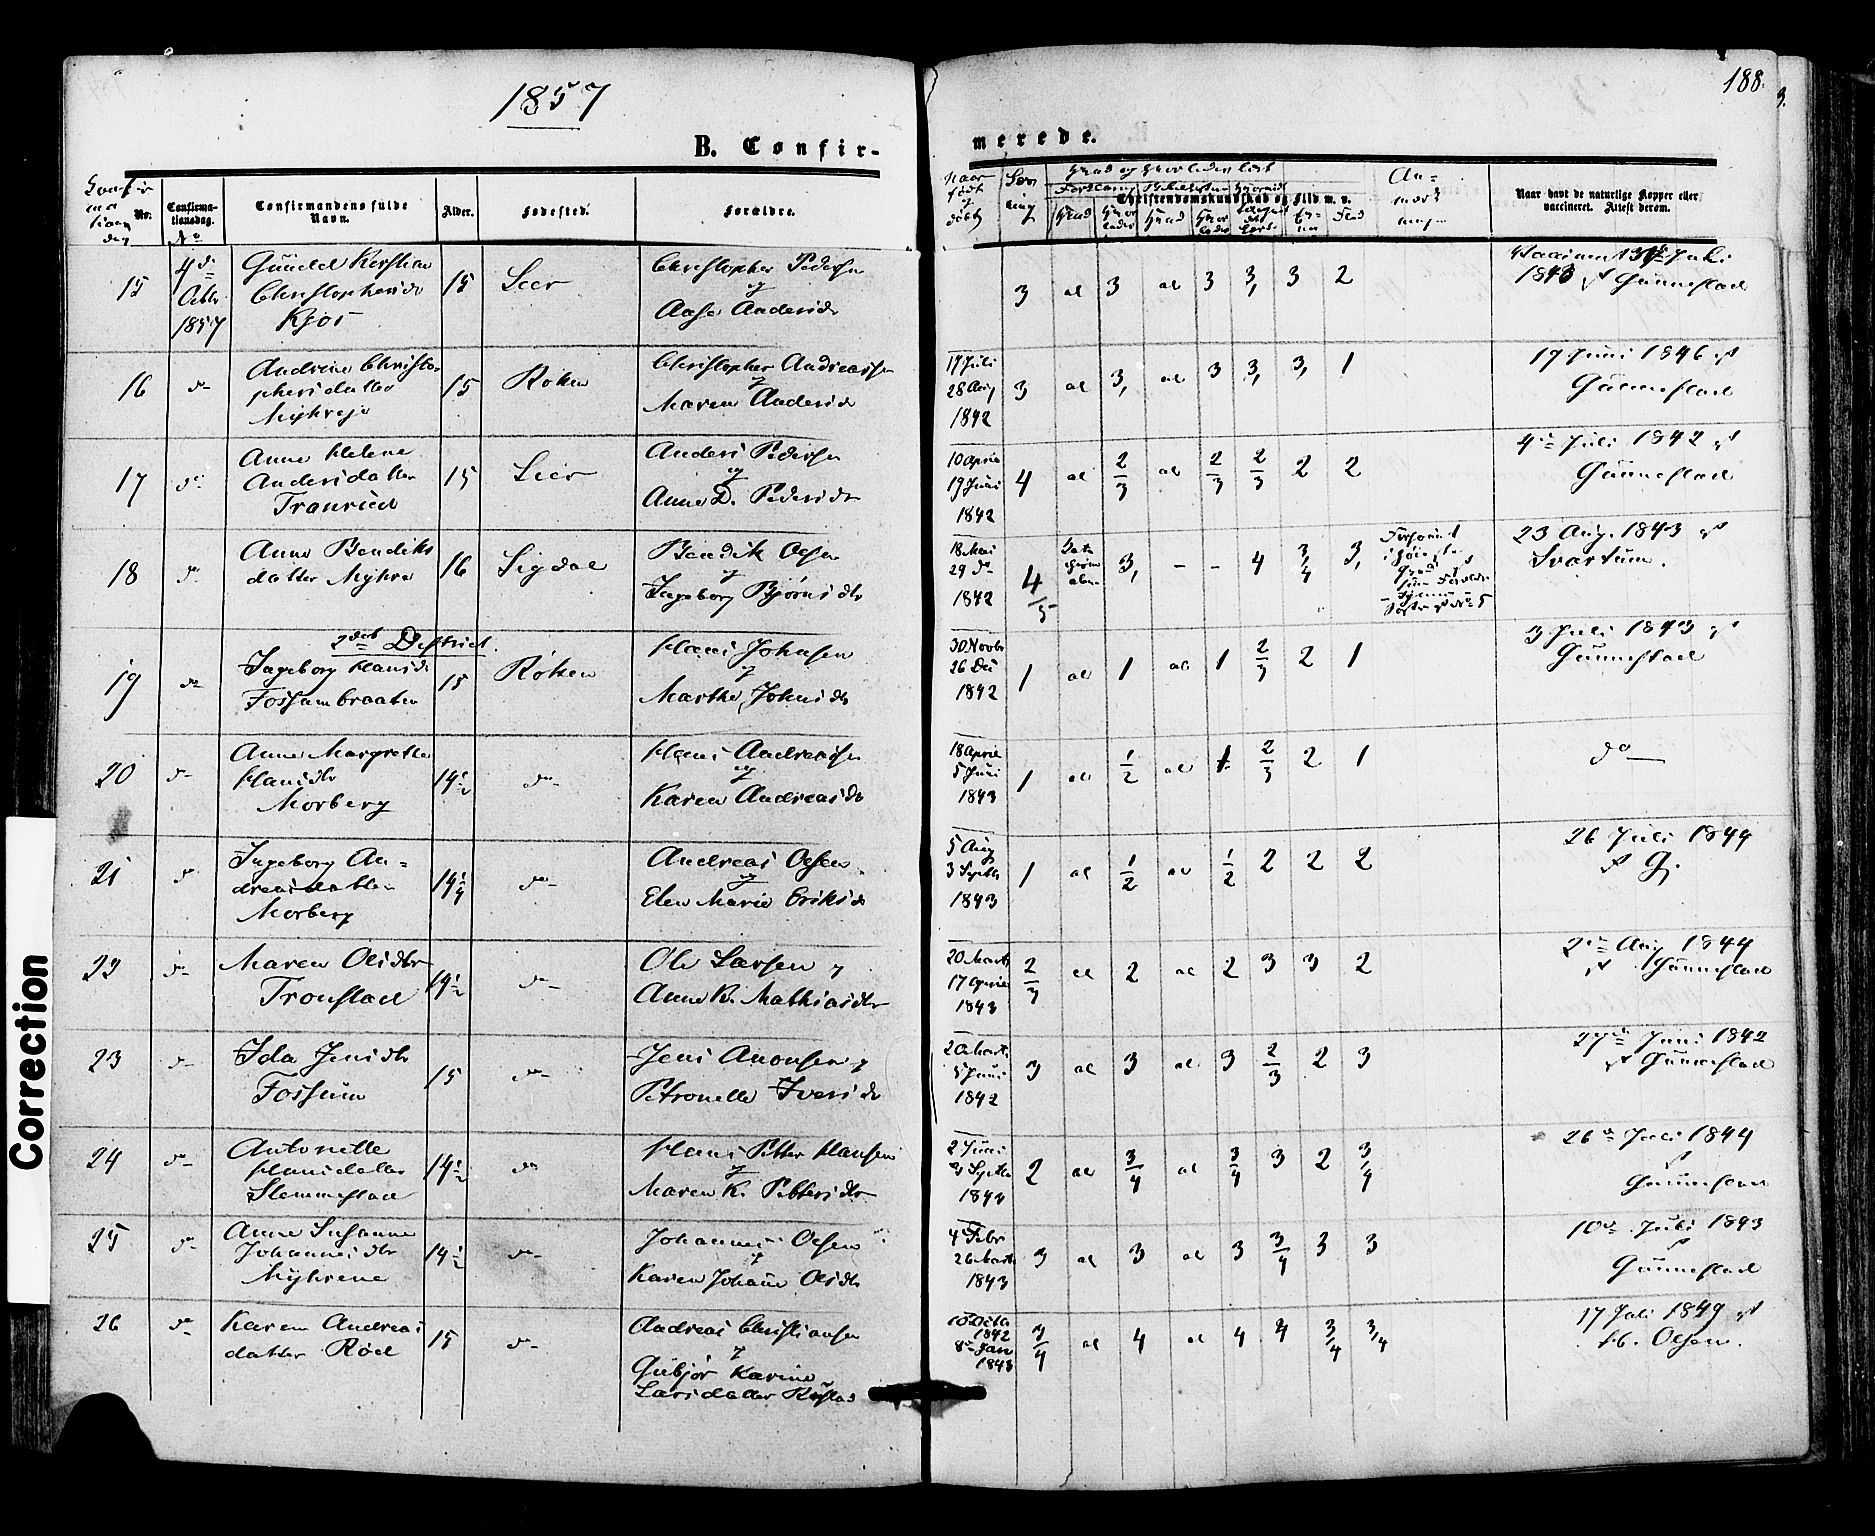 1857
188.
B. Confir-
merede.
No.
Confirma-
tionsdag.
Confirmandens fulde
Navn.
Alder.
Fødested.
Forældre.
Christendomskundskab og Flid m. v.
Naar havt de naturlige Kopper eller
vaccineret. Attest derom.
15 4de Octbr 1857 Christophersdr Kjos 15 Lier Christopher Pedersen og Aase Andersdr 3 al 3 al 3 3, 3 2 Juli 1843 Gunnestad
16 do Andrine Christophersdatter Myhreje 15 Røken Christopher Andreassen og Maren Andersdr 17 Juli 28 Aug 1842 3 al 3, al 3 3, 3, 1 17 Juni 1846 Gunnestad
17 do Anne Helene Andersdatter Tranrud 15 Lier Anders Pedersen og Anne D. Pedersdr 10 April 19 Juni 1842 4 al 2/3 al 2/3 2/3 2 2 Juli 1842 Gunnestad
18 do Anne Bendiksdatter Myhre 16 Sigdal Bendik Olsen og Ingeborg Bjørnsdtr 18 Mai 29 do 1842 4/5 3, - - 4 3/4 3, 23 Aug. 1843 Svartum.
2det District.
19 do Ingeborg Hansdr Fossumbraaten 15 Røken Hans Johnsen og Marthe Johnsdtr 30 Novbr 26 Dec 1842 1 al 1 al 1 2/3 2 1 3 Juli 1843 Gunnestad
20 do Anne Margrethe Hansdtr Morberg 14½ do Hans Andreassen og Karen Andreasdr 18 April 5 Juni 1843 1 al 1/2 al 1 2/3 2 1 do
21 do Ingeborg Andreasdatter Morberg 14¼ do Andreas Olsen og Elen Marie Eriksdr 5 Aug 3 Septbr 1843 1 al 1/2 al 1/2 2 2 2 26 Juli 1844 G.
22 do Maren Olsdtr Tronstad 14½ do Ole Larsen og Anne K. Mathiasdtr 20 Marts 17 April 1843 2/3 al 2 al 2 3 3 2 Aug 1844 Gunnestad
23 do Ida Jensdtr Fossum 15 do Jens Anonsen og Petronelle Iversdr 20 Marts 5 Juni 1842 3 al 3 al 3 2/3 2 3 27de Juni 1842 Gunnestad
24 do Antonette Hansdatter Slemmestad 14½ do Hans Petter Hansen og Maren K. Pettersdtr 2 Juni Septbr 2 al 3/4 al 3/4 3 2 3/4 26de Juli 1844 Gunnestad
25 do Anne Susanne Johannesdtr Myhrene 14½ do Johannes Olsen og Karen Johanne Olsdtr 4 Febr 26 Marts 1843 3 al 3 al 3 3/4 3 3 10de Juli 1843 Gunnestad
26 do Karen Andreasdatter Røed 15 do Andreas Christiansen og Gubjør Karine Larsdatter 1842 8de Jan 1843 3/4 al 4 al 4 4 3/4 3/4 17 Juli 1849 H. Olsen.
Correction